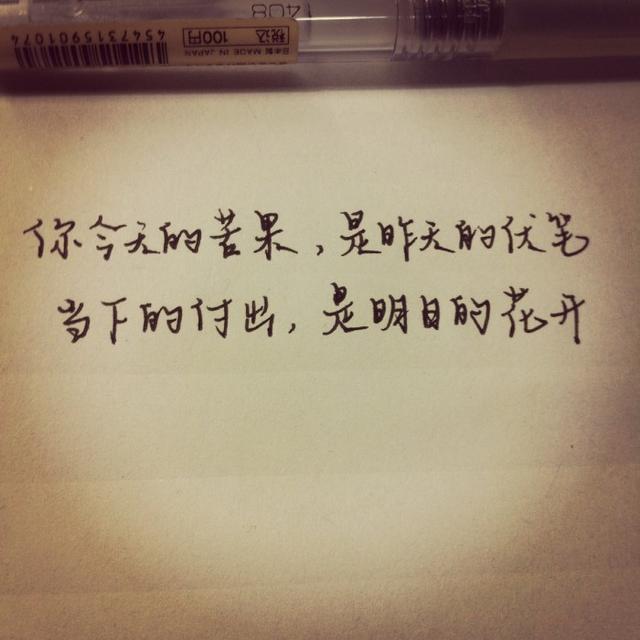 408
4547315901074
税込 100円
日本製 MADE IN JAPAN
你今天的苦果，是昨天的伏笔
当下的付出，是明日的花开